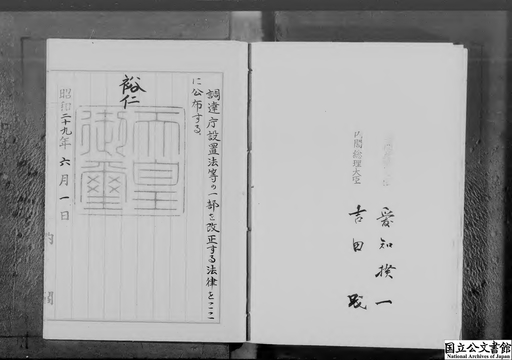 調達庁設置法等の一部を改正する法律をここ
に公布する。
裕仁
天皇
御璽
昭和二十九年六月一日
内閣
内閣総理大臣
吉田茂
愛知揆一
国立公文書館
National Archives of Japan